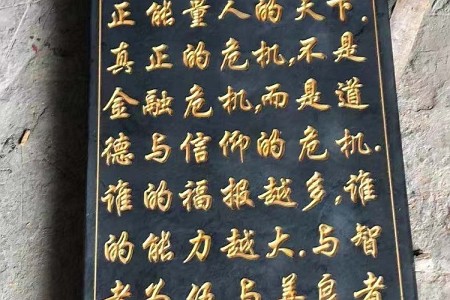 正能量人的天下.
真正的危机,不是
金融危机,而是道
德与信仰的危机.
谁的福报越多,谁
的能力越大.与智
者为伍与善良者